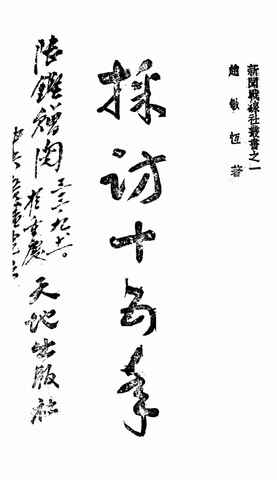 新聞戰線社叢書之一
趙敏恒著
採訪十五年
天地出版社
陸鏗贈閱
三三、九、十一。
於重慶